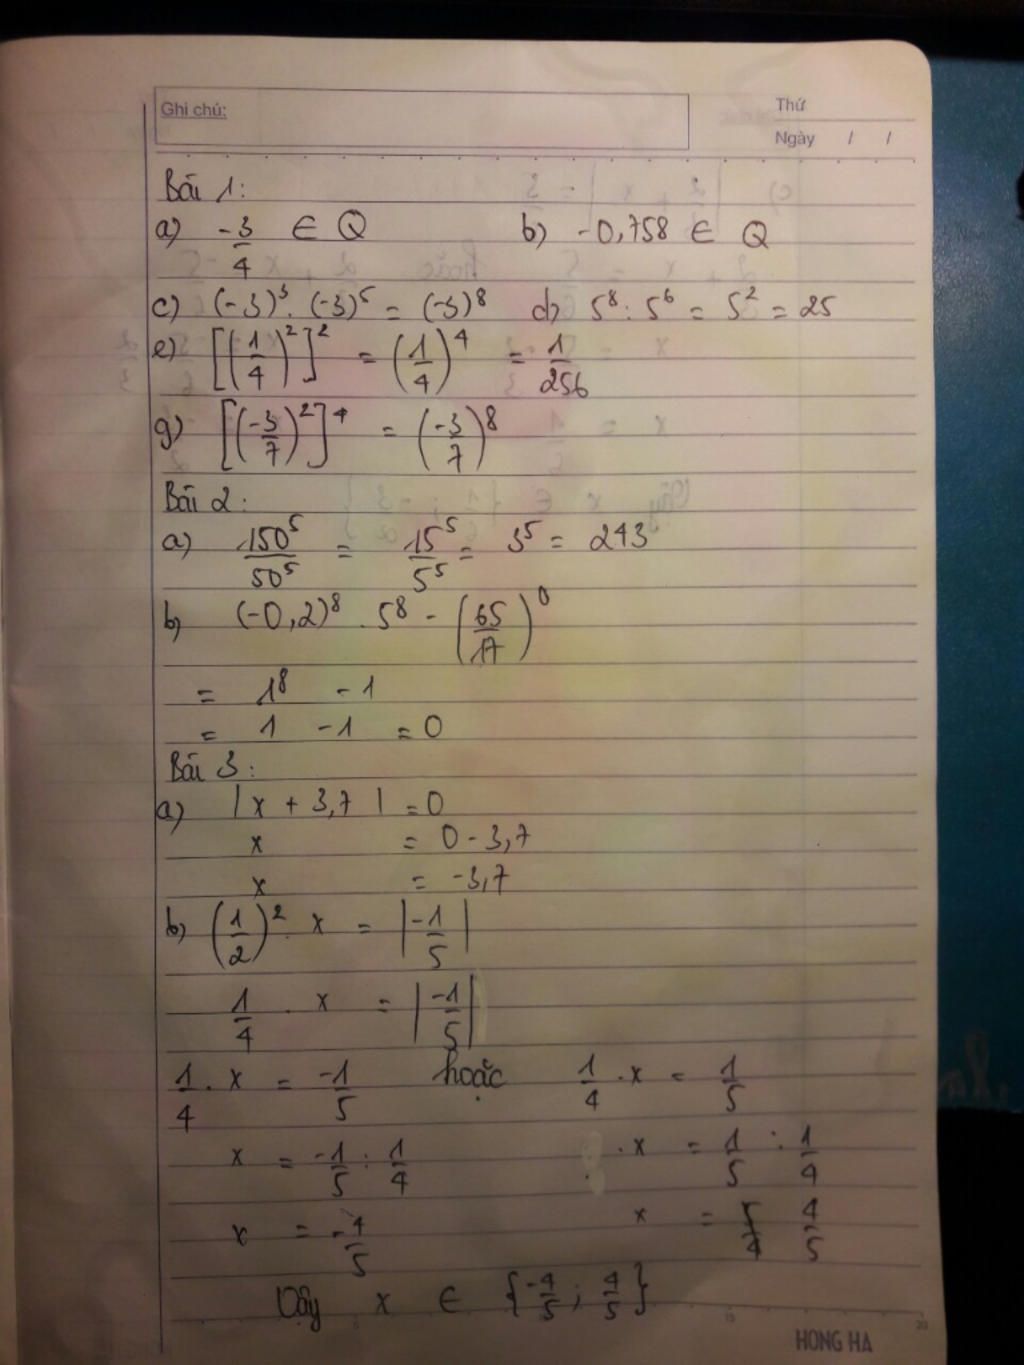 Ghi chú:
Thứ
Ngày / /
Bài 1:
a) -3/4 ∈ Q b) -0,758 ∈ Q
c) (-3)³ . (-3)⁵ = (-3)⁸ d) 5⁸ : 5⁶ = 5² = 25
e) [(1/4)²]² = (1/4)⁴ = 1/256
g) [(-3/7)²]⁴ = (-3/7)⁸
Bài 2:
a) 150⁵/50⁵ = 15⁵/5⁵ = 3⁵ = 243
b) (-0,2)⁸ . 5⁸ - (65/17)⁰
= 1⁸ - 1
= 1 - 1 = 0
Bài 3:
a) |x + 3,7| = 0
x = 0 - 3,7
x = -3,7
b) (1/2)² . x = |-1/5|
1/4 . x = |-1/5|
1/4 . x = -1/5 hoặc 1/4 . x = 1/5
x = -1/5 : 1/4 . x = 1/5 : 1/4
x = -4/5 x = 4/5
Vậy x ∈ {-4/5 ; 4/5}
HONG HA